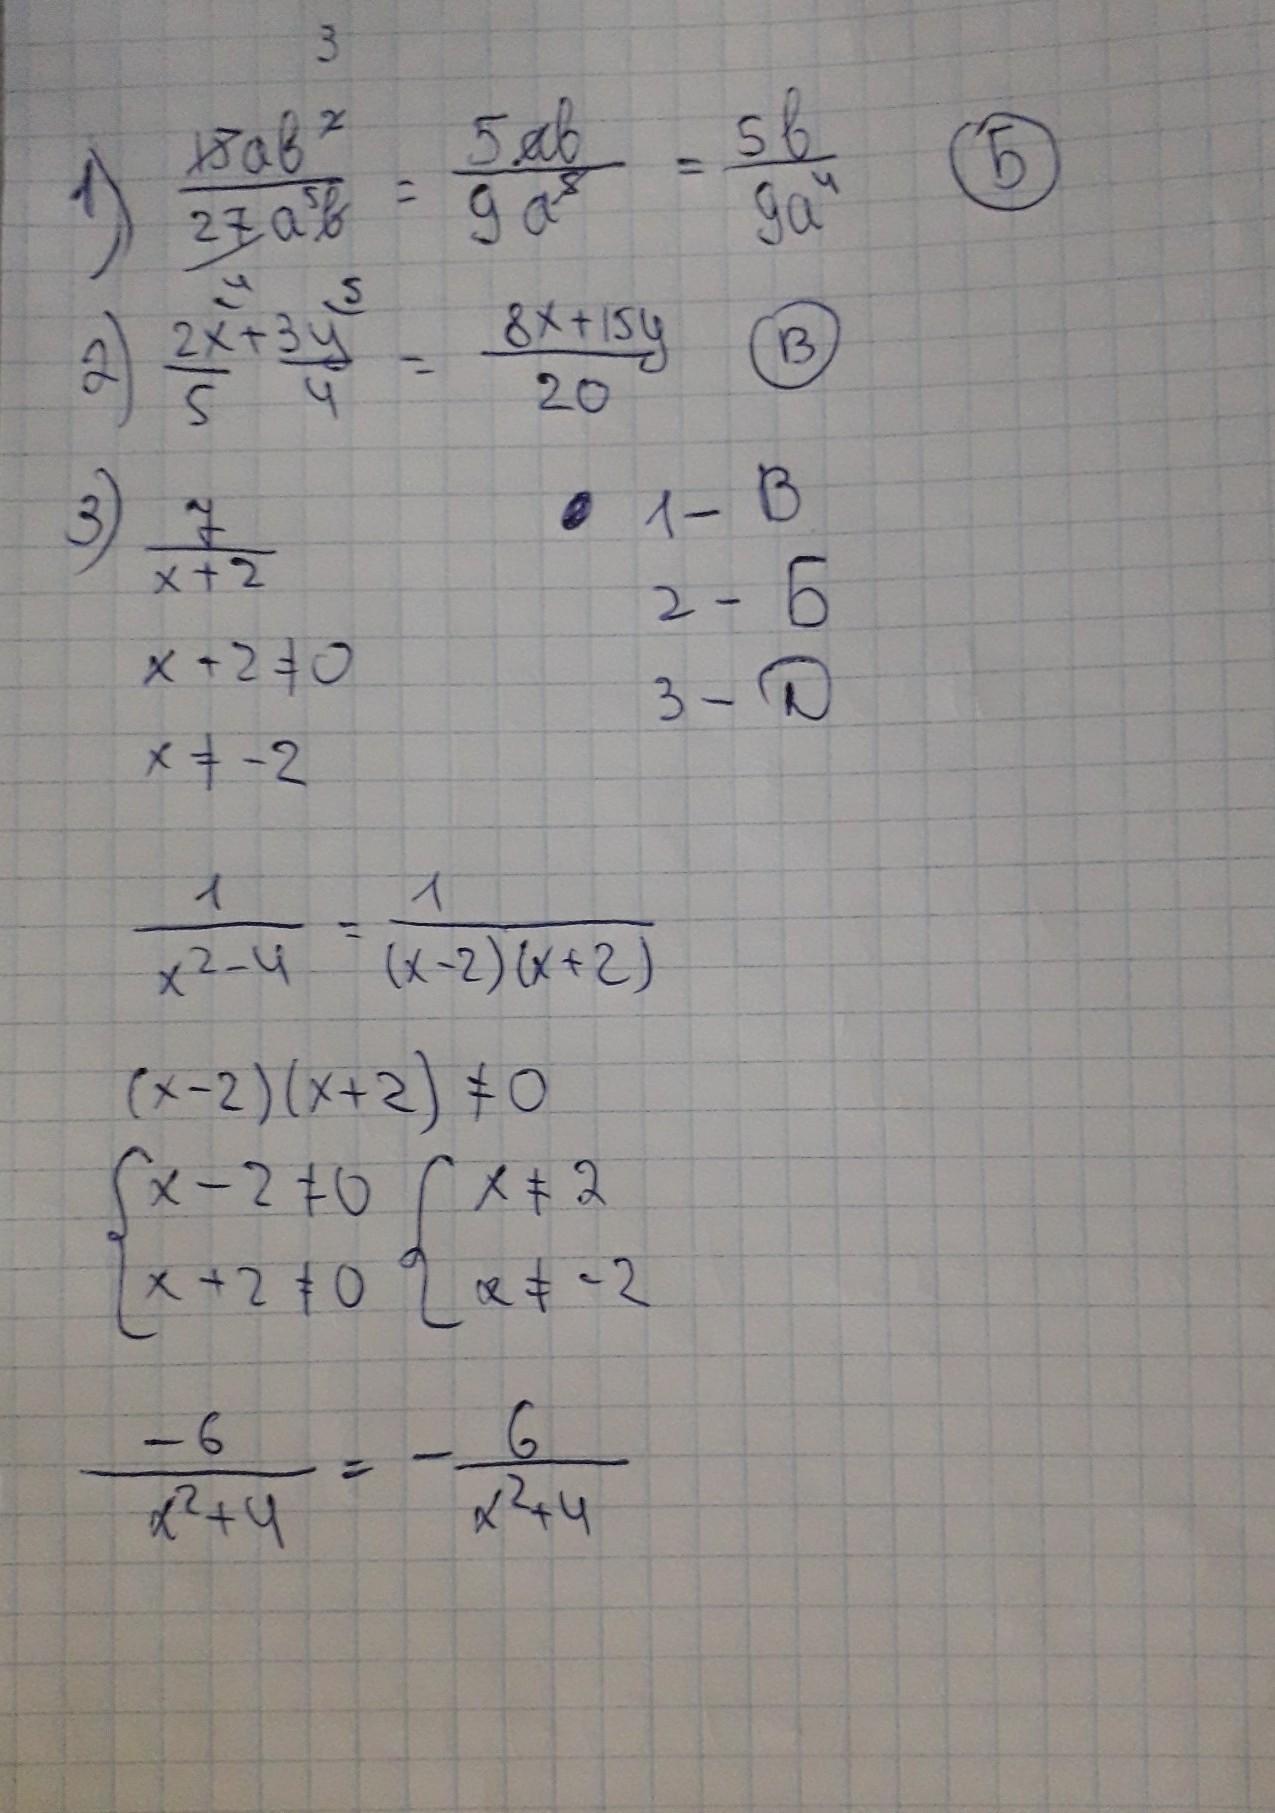 3
1) 15ab²/27a⁵b = 5ab/9a⁵ = 5b/9a⁴ Б
2) 2x⁽⁴/5 + 3y⁽⁵/4 = 8x+15y/20 В
3) 7/x+2 1 – В
2 – Б
x + 2 ≠ 0 3 – Д
x ≠ -2
1/x²-4 = 1/(x-2)(x+2)
(x-2)(x+2) ≠ 0
{x - 2 ≠ 0 {x ≠ 2
x + 2 ≠ 0 x ≠ -2
-6/x²+4 = - 6/x²+4